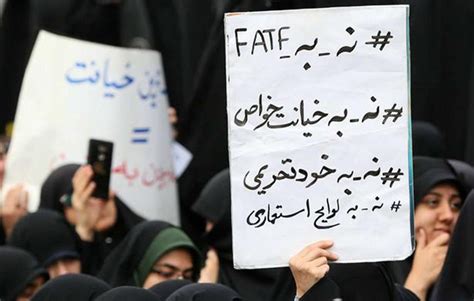 #نه_به_FATF
#نه_به_خیانت_خواص
#نه_به_خودتحریمی
#نه_به لوایح استعماری
خیانت
=